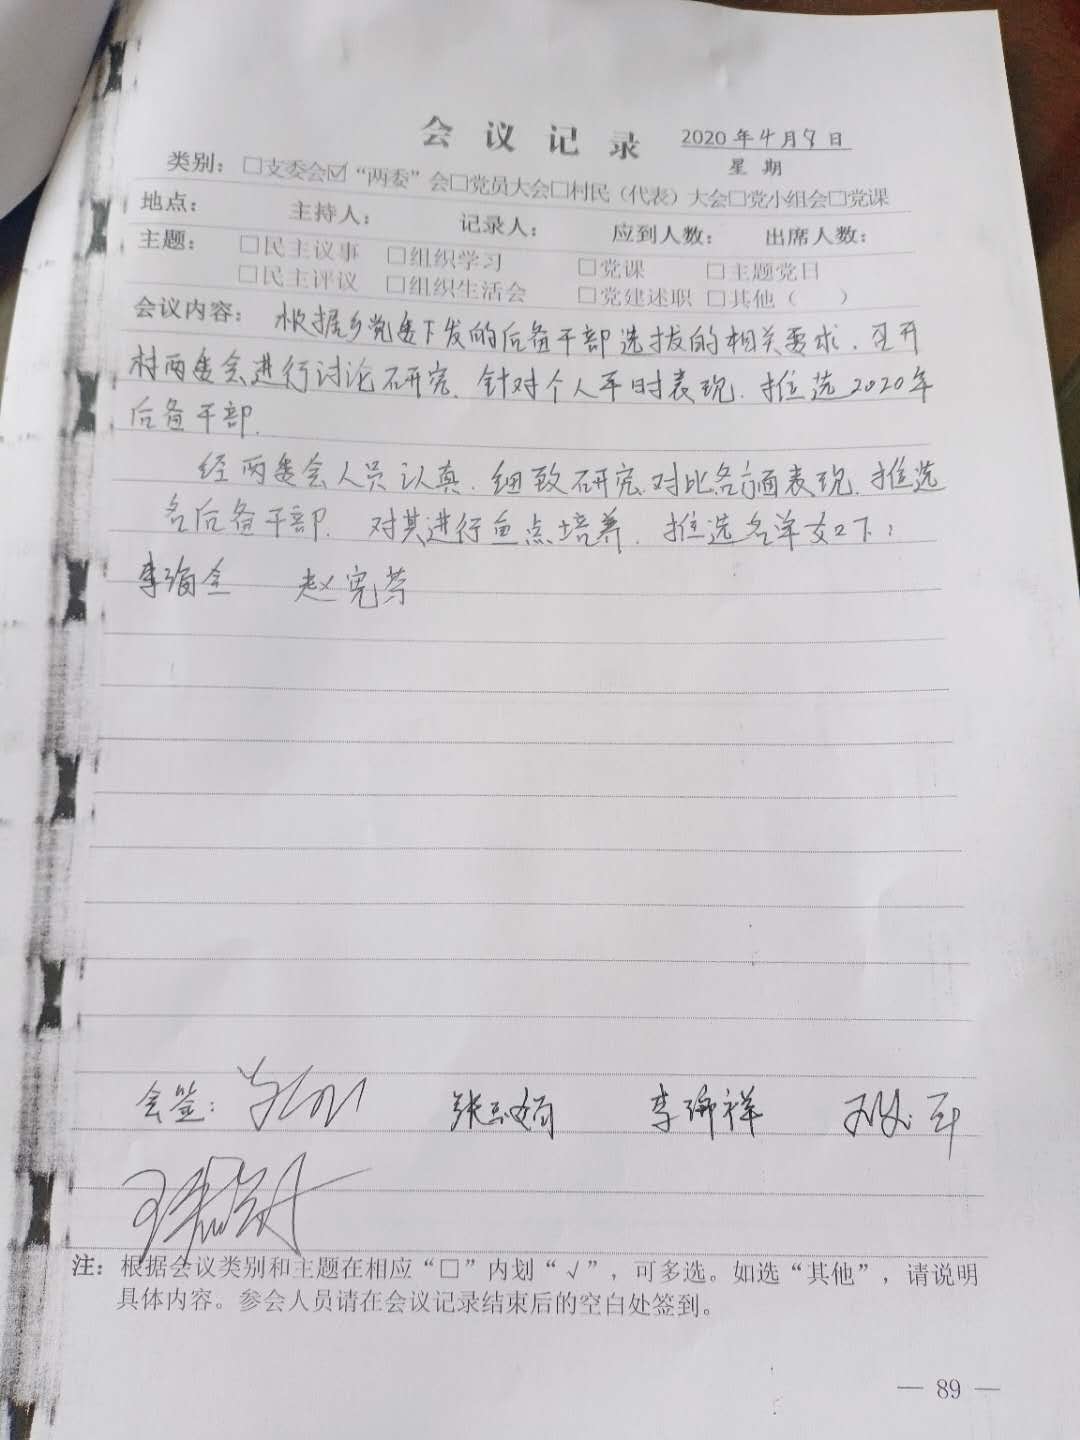 会议记录 2020年4月9日
星期
类别：□支委会☑“两委”会□党员大会□村民（代表）大会□党小组会□党课
地点： 主持人： 记录人： 应到人数： 出席人数：
主题： □民主议事 □组织学习 □党课 □主题党日
□民主评议 □组织生活会 □党建述职 □其他（ ）
会议内容： 根据乡党委下发的后备干部选拔的相关要求，召开
村两委会进行讨论研究，针对个人平时表现，推选2020年
后备干部。
经两委会人员认真、细致研究，对比各方面表现，推选
名后备干部，对其进行重点培养，推选名单如下：
李 全 赵宪芳
会签： 李 祥
注：根据会议类别和主题在相应“□”内划“√”，可多选。如选“其他”，请说明
具体内容。参会人员请在会议记录结束后的空白处签到。
— 89 —